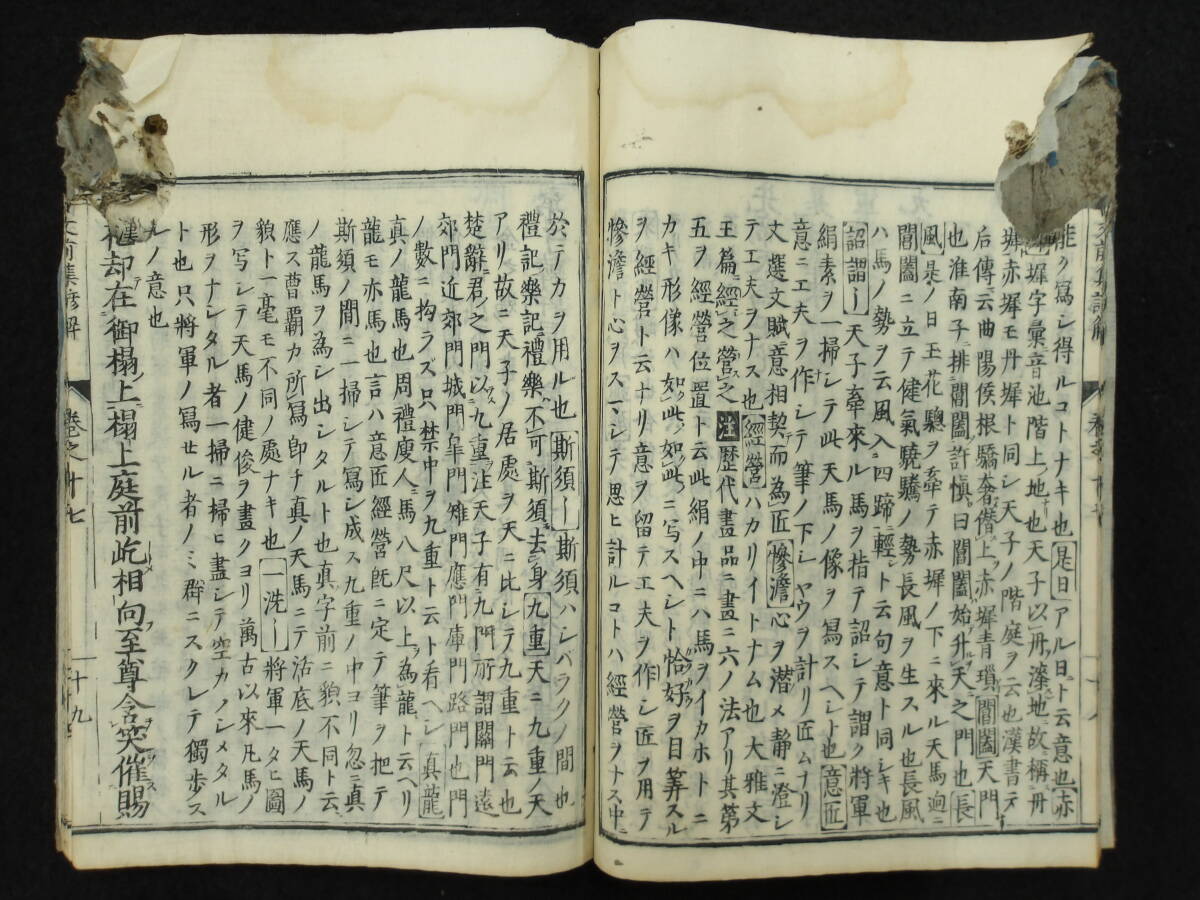 能ク寫シ得ルコトナキ也是日アル日ト云意也赤
墀字彙音池階上地也天子以丹漆地故稱丹
墀赤墀モ丹墀ト同シ天子ノ階庭ヲ云也漢書
后傳云曲陽侯根驕奢僭上赤墀青瑣閶闔天門
也淮南子排閶闔許慎曰閶闔始升天之門也長
風是ノ日玉花驄ヲ牽テ赤墀ノ下ニ來ル天馬迥ニ
閶闔ニ立テ健氣驍驕ノ勢長風ヲ生スル也長風
ハ馬ノ勢ヲ云風入四蹄輕ト云句意ト同シキ也
詔謂天子牽來ル馬ヲ指テ詔シテ謂ク將軍
絹素ヲ一掃シテ此天馬ノ像ヲ寫スヘシト也意匠
意ニエ夫ヲ作シテ筆ノ下シヤウヲ計リ匠ムナリ
文選文賦意相契而為匠慘澹心ヲ潜メ静ニ澄シ
テ工夫ヲナス也經營ハカリイトナム也大雅文
王篇經之營之注歴代畫品ニ畫ニ六ノ法アリ其第
五ヲ經營位置ト云此絹ノ中ニハ馬ヲイカホトニ
カキ形像ハ如此如此ニ写スヘシト恰好ヲ目筭スル
ヲ經營ト云ナリ意ヲ留テ工夫ヲ作シ匠ヲ用テ
慘澹ト心ヲスマシテ思ヒ計ルコトハ經營ヲナス中ニ
於テカヲ用ル也斯須斯須ハシバラクノ間也
禮記樂記禮樂不可斯須去身九重天ニ九重ノ天
アリ故ニ天子ノ居處ヲ天ニ比シテ九重ト云也
楚辭君之門以九重注天子有九門所謂關門遠
郊門近郊門城門皐門雉門應門庫門路門也門
ノ數ニ拘ラズ只禁中ヲ九重ト云ト看ヘシ真龍
真ノ龍馬也周禮廋人馬八尺以上為龍ト云ヘリ
龍モ亦馬也言ハ意匠經營旣ニ定テ筆ヲ把テ
斯須ノ間ニ一掃シテ寫シ成ス九重ノ中ヨリ忽ニ真
ノ龍馬ヲ為シ出シタルト也真字前ニ貌不同ト云
應ス曹覇カ所寫印チ真ノ天馬ニテ活底ノ天馬ノ
貌ト一毫モ不同ノ處ナキ也一洗將軍一タヒ圖
ヲ写シテ天馬ノ健俊ヲ盡クヨリ萬古以來凡馬ノ
形ヲナシタル者一掃ニ掃ヒ盡シテ空カノシメタル
ト也只將軍ノ寫セル者ノミ群ニスクレテ獨歩ス
ルノ意也
却在御榻上榻上庭前屹相向至尊含笑催賜
卷之十七
十九